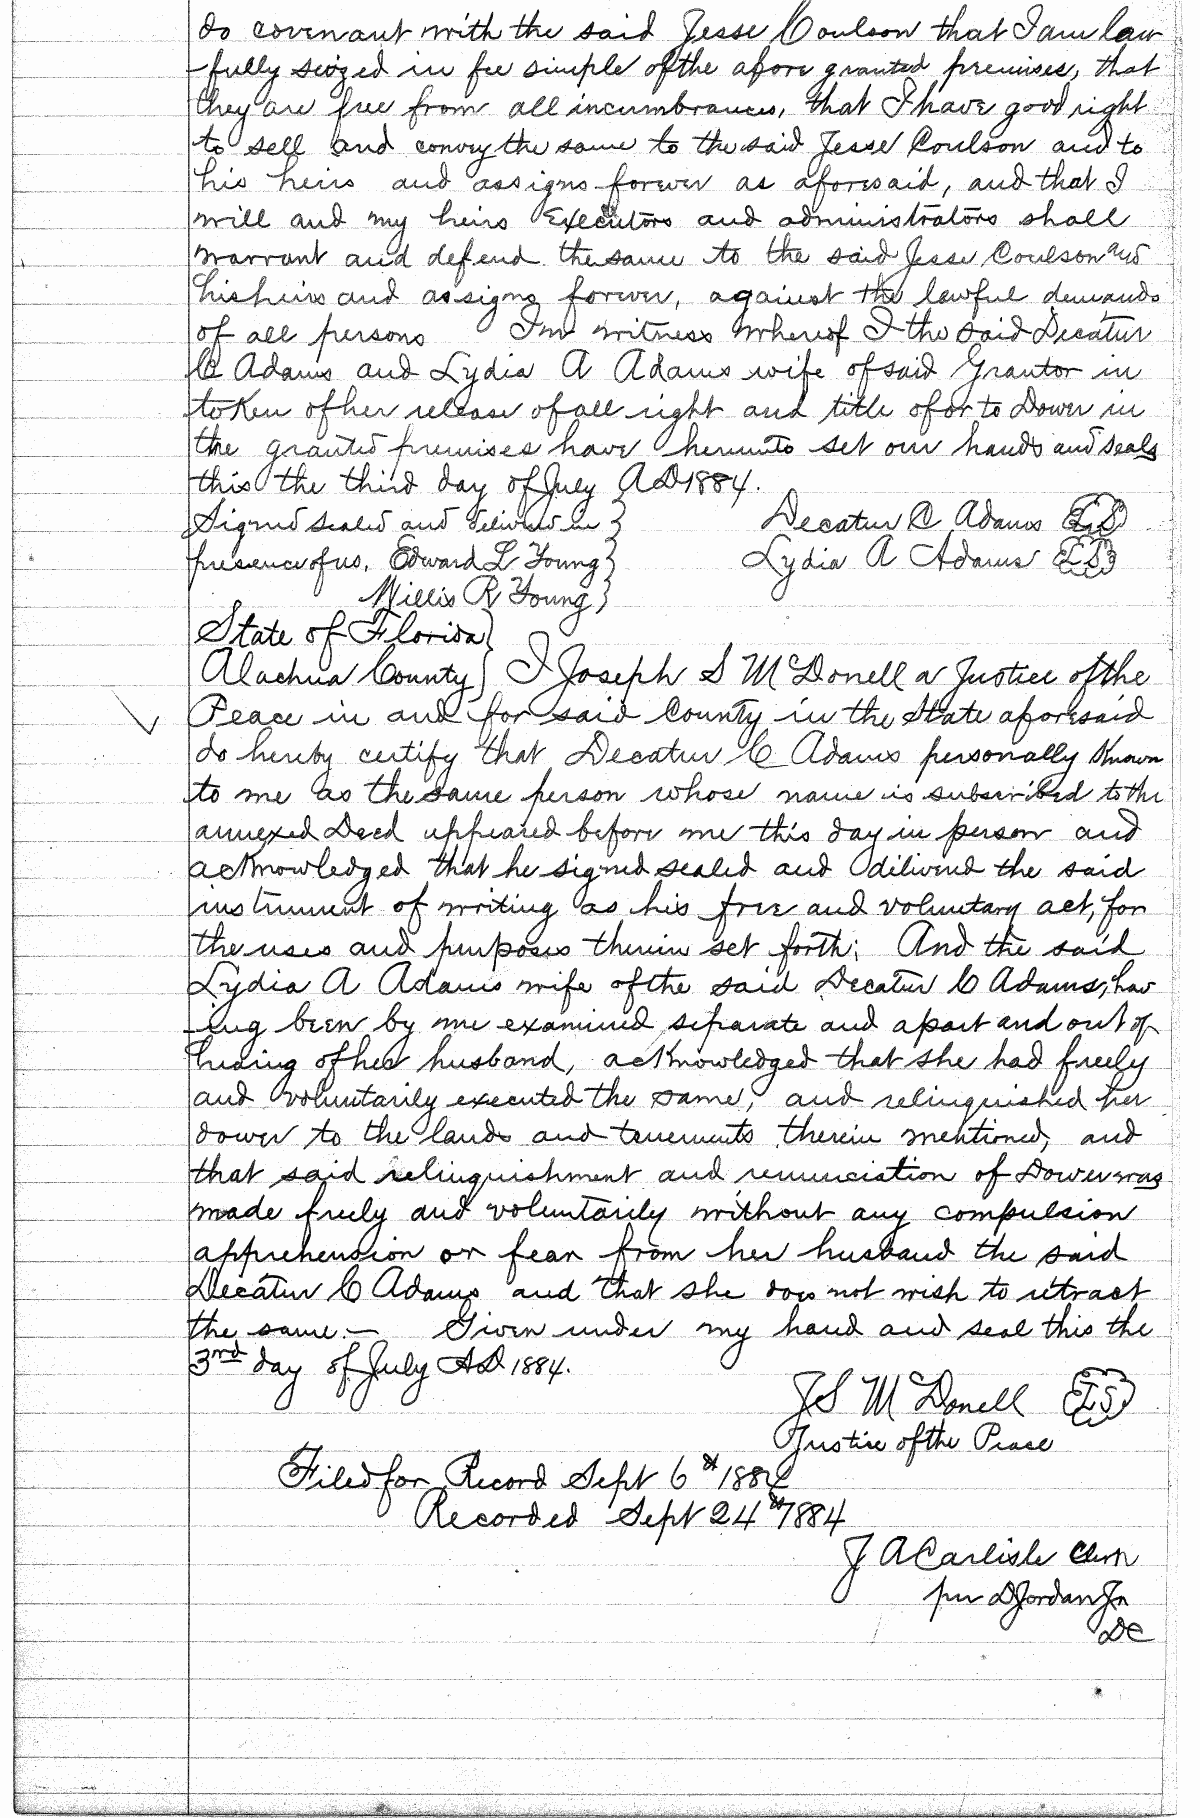 do covenant with the said Jesse Coulson that I am law
-fully seized in fee simple of the afore granted premises, that
they are free from all incumbrances, that I have good right
to sell and convey the same to the said Jesse Coulson and to
his heirs and assigns forever as aforesaid, and that I
will and my heirs Executors and administrators shall
warrant and defend the same to the said Jesse Coulson and
his heirs and assigns forever, against the lawful demands
of all persons In witness whereof I the said Decatur
C Adams and Lydia A Adams wife of said Grantor in
token of her release of all right and title of or to Dower in
the granted premises have hereunto set our hands and seals
this the third day of July AD 1884.
Signed sealed and delivered in } Decatur C Adams LS
presence of us, Edward L Young } Lydia A Adams LS
Willis R Young }
State of Florida }
Alachua County } I Joseph S McDonell a Justice of the
Peace in and for said County in the State aforesaid
do hereby certify that Decatur C Adams personally known
to me as the same person whose name is subscribed to the
annexed Deed appeared before me this day in person and
acknowledged that he signed sealed and delivered the said
instrument of writing as his free and voluntary act, for
the uses and purposes therein set forth; And the said
Lydia A Adams wife of the said Decatur C Adams, hav
-ing been by me examined separate and apart and out of
hearing of her husband, acknowledged that she had freely
and voluntarily executed the same, and relinquished her
dower to the lands and tenements therein mentioned, and
that said relinquishment and renunciation of Dower was
made freely and voluntarily without any compulsion
apprehension or fear from her husband the said
Decatur C Adams and that she does not wish to retract
the same.— Given under my hand and seal this the
3rd day of July AD 1884.
J S McDonell LS
Justice of the Peace
Filed for Record Sept 6th 1884
Recorded Sept 24th 1884
J A Carlisle Clerk
per D Jordan Jr
DC